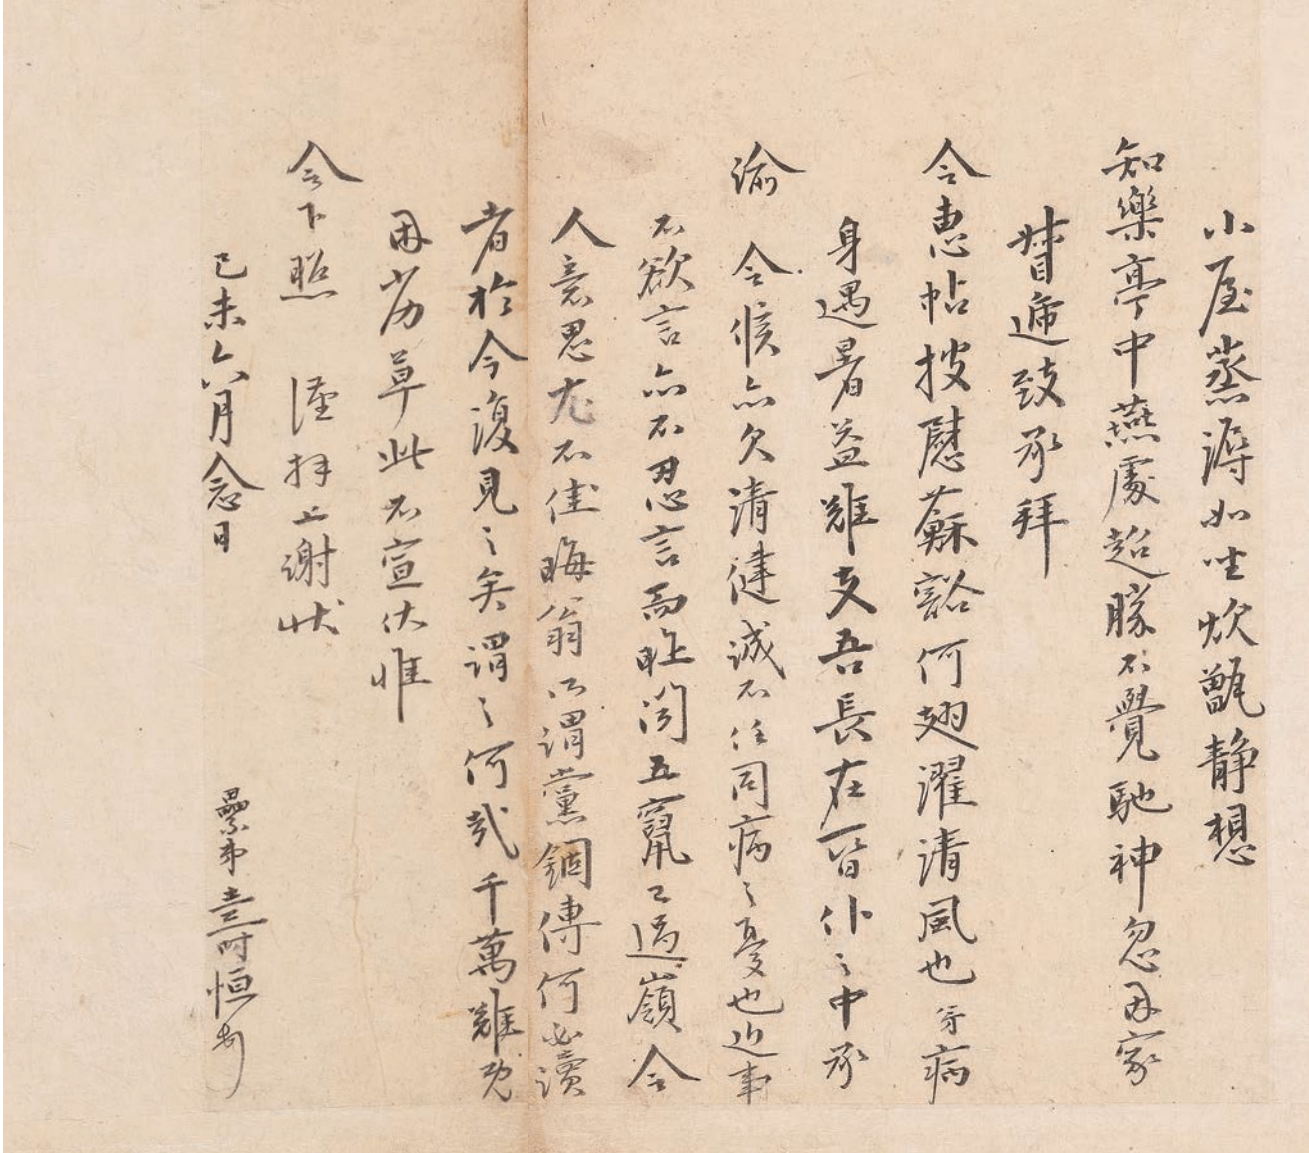 小屋蒸溽如坐炊甑靜想
知樂亭中燕處超勝不覺馳神忽因家
督遞致承拜
令惠帖披慰蘇豁何翅濯清風也 病
身遇暑益難支吾長在昏仆之中承
諭 令候亦欠清健誠不任同病之憂也近事
不欲言亦不忍言而昨聞五竄已過嶺 令
人意思尤不佳晦翁所謂黨錮傳何必讀
者於今復見之矣謂之何哉千萬難旣
困劣草此不宣伏惟
令下照 謹拜上謝狀
己未六月念日
纍弟 時恒